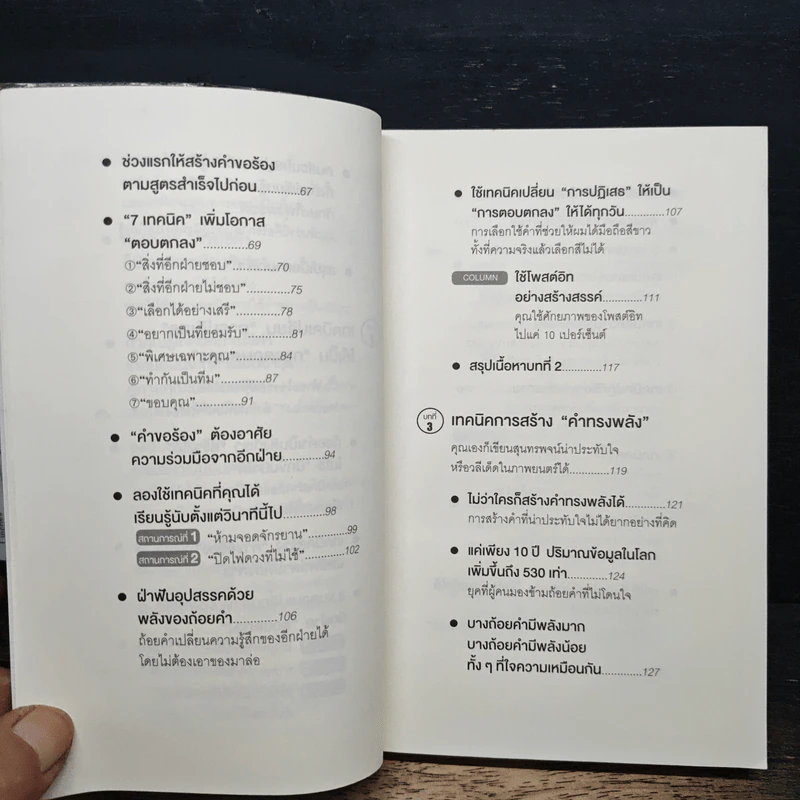 ● ช่วงแรกให้สร้างคำขอร้อง
ตามสูตรสำเร็จไปก่อน.............67
● "7 เทคนิค" เพิ่มโอกาส
"ตอบตกลง".............69
①"สิ่งที่อีกฝ่ายชอบ".............70
②"สิ่งที่อีกฝ่ายไม่ชอบ".............75
③"เลือกได้อย่างเสรี".............78
④"อยากเป็นที่ยอมรับ".............81
⑤"พิเศษเฉพาะคุณ".............84
⑥"ทำกันเป็นทีม".............87
⑦"ขอบคุณ".............91
● "คำขอร้อง" ต้องอาศัย
ความร่วมมือจากอีกฝ่าย.............94
● ลองใช้เทคนิคที่คุณได้
เรียนรู้นับตั้งแต่วินาทีนี้ไป.............98
สถานการณ์ที่ 1 "ห้ามจอดจักรยาน".............99
สถานการณ์ที่ 2 "ปิดไฟดวงที่ไม่ใช้".............102
● ฝ่าฟันอุปสรรคด้วย
พลังของถ้อยคำ.............106
ถ้อยคำเปลี่ยนความรู้สึกของอีกฝ่ายได้
โดยไม่ต้องเอาของมาล่อ
● ใช้เทคนิคเปลี่ยน "การปฏิเสธ" ให้เป็น
"การตอบตกลง" ให้ได้ทุกวัน.............107
การเลือกใช้คำที่ช่วยให้ผมได้มือถือสีขาว
ทั้งที่ความจริงแล้วเลือกสีไม่ได้
COLUMN ใช้โพสต์อิท
อย่างสร้างสรรค์.............111
คุณใช้ศักยภาพของโพสต์อิท
ไปแค่ 10 เปอร์เซ็นต์
● สรุปเนื้อหาบทที่ 2.............117
บทที่ 3 เทคนิคการสร้าง "คำทรงพลัง"
คุณเองก็เขียนสุนทรพจน์น่าประทับใจ
หรือวลีเด็ดในภาพยนตร์ได้.............119
● ไม่ว่าใครก็สร้างคำทรงพลังได้.............121
การสร้างคำที่น่าประทับใจไม่ได้ยากอย่างที่คิด
● แค่เพียง 10 ปี ปริมาณข้อมูลในโลก
เพิ่มขึ้นถึง 530 เท่า.............124
ยุคที่ผู้คนมองข้ามถ้อยคำที่ไม่โดนใจ
● บางถ้อยคำมีพลังมาก
บางถ้อยคำมีพลังน้อย
ทั้ง ๆ ที่ใจความเหมือนกัน.............127